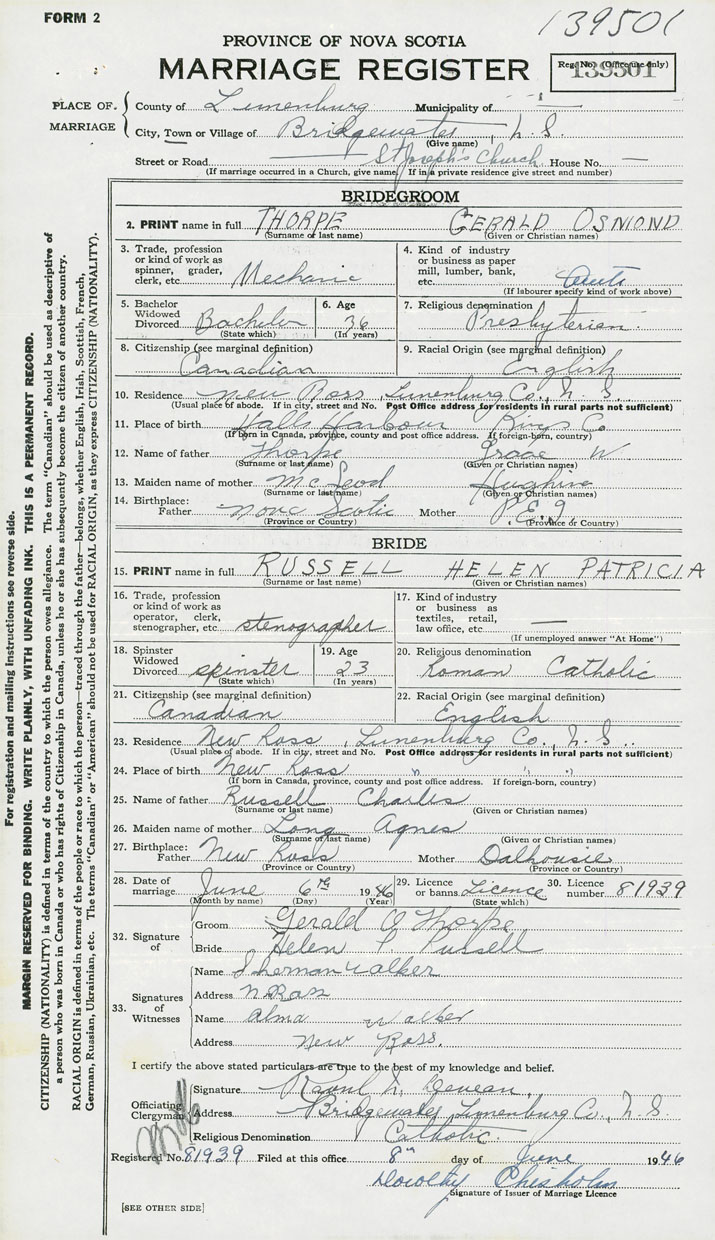 FORM 2
139501
PROVINCE OF NOVA SCOTIA
MARRIAGE REGISTER
Reg. No. (Office use only)
139501
PLACE OF MARRIAGE
County of Lunenburg Municipality of —
City, Town or Village of Bridgewater, N.S.
(Give name)
Street or Road — St Joseph's Church House No. —
(If marriage occurred in a Church, give name. If in a private residence give street and number)
BRIDEGROOM
2. PRINT name in full THORPE GERALD OSMOND
(Surname or last name) (Given or Christian names)
3. Trade, profession or kind of work as spinner, grader, clerk, etc. Mechanic
4. Kind of industry or business as paper mill, lumber, bank, etc. Auto
(If labourer specify kind of work above)
5. Bachelor Widowed Divorced Bachelor
(State which)
6. Age 36
(In years)
7. Religious denomination Presbyterian
8. Citizenship (see marginal definition) Canadian
9. Racial Origin (see marginal definition) English
10. Residence New Ross, Lunenburg Co., N.S.
(Usual place of abode. If in city, street and No. Post Office address for residents in rural parts not sufficient)
11. Place of birth Halls Harbour Kings Co.
(If born in Canada, province, county and post office address. If foreign-born, country)
12. Name of father Thorpe Isaac W
(Surname or last name) (Given or Christian names)
13. Maiden name of mother McLeod Hughina
(Surname or last name) (Given or Christian names)
14. Birthplace: Father Nova Scotia Mother P.E.I
(Province or Country) (Province or Country)
BRIDE
15. PRINT name in full RUSSELL HELEN PATRICIA
(Surname or last name) (Given or Christian names)
16. Trade, profession or kind of work as operator, clerk, stenographer, etc. stenographer
17. Kind of industry or business as textiles, retail, law office, etc. —
(If unemployed answer "At Home")
18. Spinster Widowed Divorced spinster
(State which)
19. Age 23
(In years)
20. Religious denomination Roman Catholic
21. Citizenship (see marginal definition) Canadian
22. Racial Origin (see marginal definition) English
23. Residence New Ross, Lunenburg Co., N.S.
(Usual place of abode. If in city, street and No. Post Office address for residents in rural parts not sufficient)
24. Place of birth New Ross " " "
(If born in Canada, province, county and post office address. If foreign-born, country)
25. Name of father Russell Charles
(Surname or last name) (Given or Christian names)
26. Maiden name of mother Long Agnes
(Surname or last name) (Given or Christian names)
27. Birthplace: Father New Ross Mother Dalhousie
(Province or Country) (Province or Country)
28. Date of marriage June 6th 1946
(Month by name) (Day) (Year)
29. Licence or banns Licence
(State which)
30. Licence number 81939
32. Signature of
Groom Gerald O Thorpe
Bride Helen P. Russell
33. Signatures of Witnesses
Name Sherman Walker
Address N Ross
Name Alma Walker
Address New Ross.
I certify the above stated particulars are true to the best of my knowledge and belief.
Officiating Clergyman
Signature Raoul
Address Bridgewater, Lunenburg Co., N.S.
Religious Denomination Catholic.
Registered No. 81939 Filed at this office 8th day of June 1946
Dorothy Chisholm
Signature of Issuer of Marriage Licence
[SEE OTHER SIDE]
For registration and mailing instructions see reverse side.
MARGIN RESERVED FOR BINDING. WRITE PLAINLY, WITH UNFADING INK. THIS IS A PERMANENT RECORD.
CITIZENSHIP (NATIONALITY) is defined in terms of the country to which the person owes allegiance. The term "Canadian" should be used as descriptive of
a person who was born in Canada or who has rights of Citizenship in Canada, unless he or she has subsequently become the citizen of another country.
RACIAL ORIGIN is defined in terms of the people or race to which the person—traced through the father—belongs, whether English, Irish, Scottish, French,
German, Russian, Ukrainian, etc. The terms "Canadian" or "American" should not be used for RACIAL ORIGIN, as they express CITIZENSHIP (NATIONALITY).